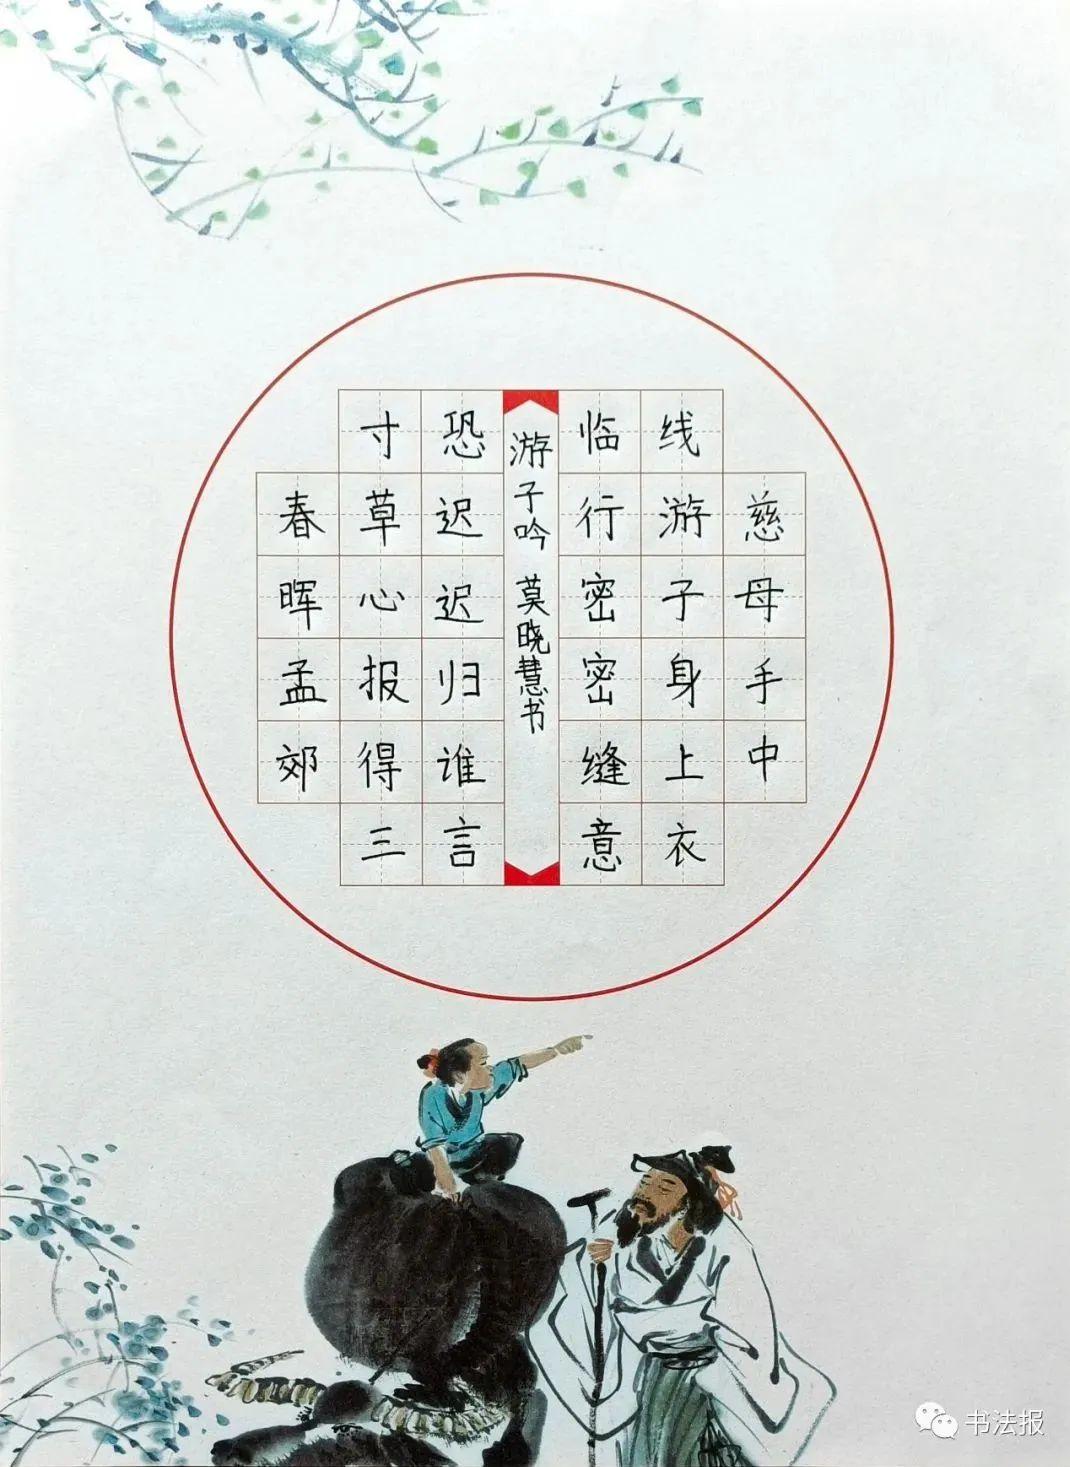 慈母手中
线游子身上衣
临行密密缝意
游子吟 莫晓慧书
恐迟迟归谁言
寸草心报得三
春晖孟郊
书法报